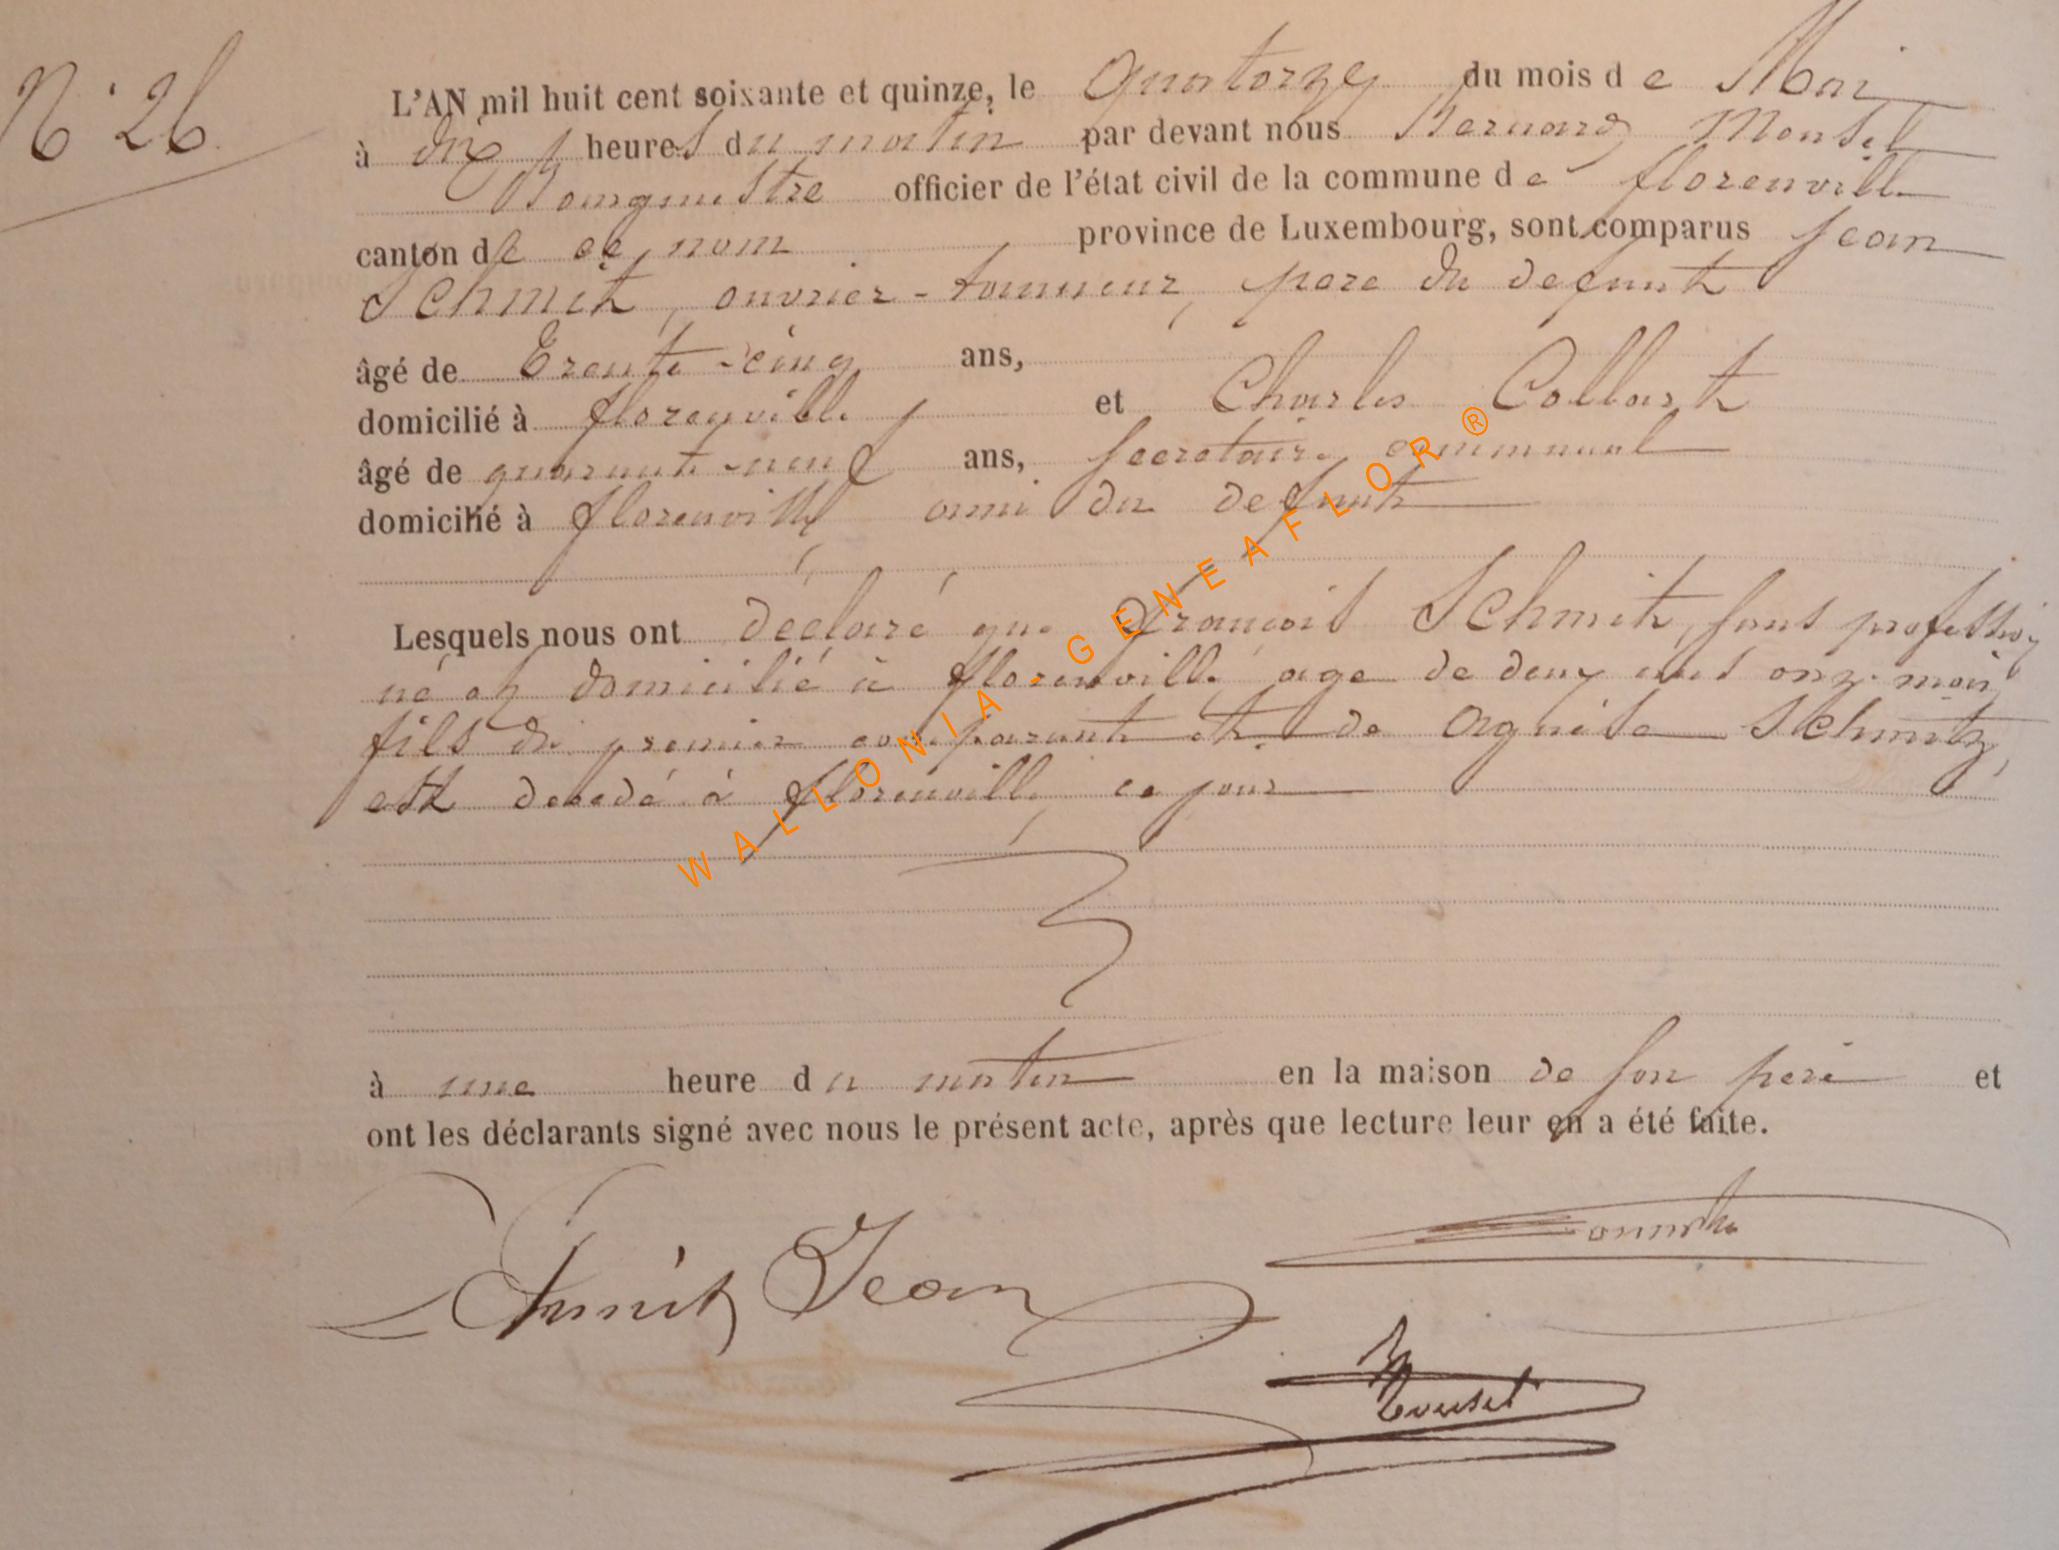 N° 26
L'AN mil huit cent soixante et quinze, le quatorze du mois de Mai
à dix heures du matin par devant nous Bernard Mousel
Bourgmestre officier de l'état civil de la commune de florenville
canton de ce nom province de Luxembourg, sont comparus Jean
Schmit, ouvrier-tanneur, père du defunt
âgé de Trente-cinq ans,
domicilié à florenville et Charles Collart
âgé de quarante-neuf ans, secretaire communal
domicilié à florenville ami du defunt
Lesquels nous ont déclaré que François Schmit, sans profession
né et domicilié à florenville age de deux ans onze mois
fils du premier comparant et de Agnise Schmitz,
est décedé à florenville, ce jour
à une heure du matin en la maison de son père et
ont les déclarants signé avec nous le présent acte, après que lecture leur en a été faite.
Schmit Jean
Mousel
WALLONIA - GENEAFLOR ®